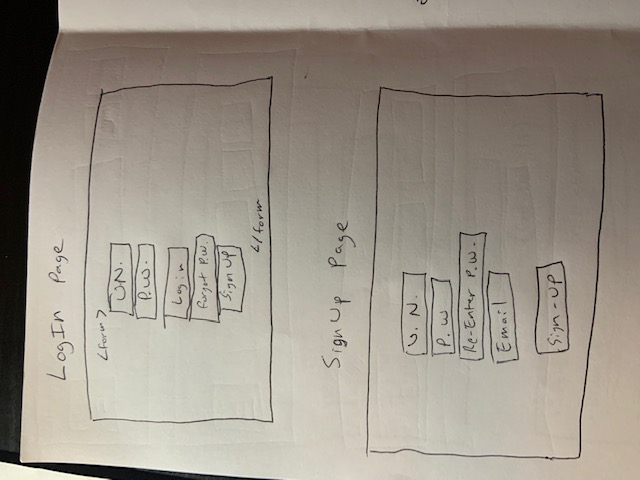 LogIn Page
<form>
U.N.
P.W.
Login
Forgot P.W.
Sign Up
</form
SignUp Page
U.N.
P.W
Re-Enter P.W.
Email
Sign-Up